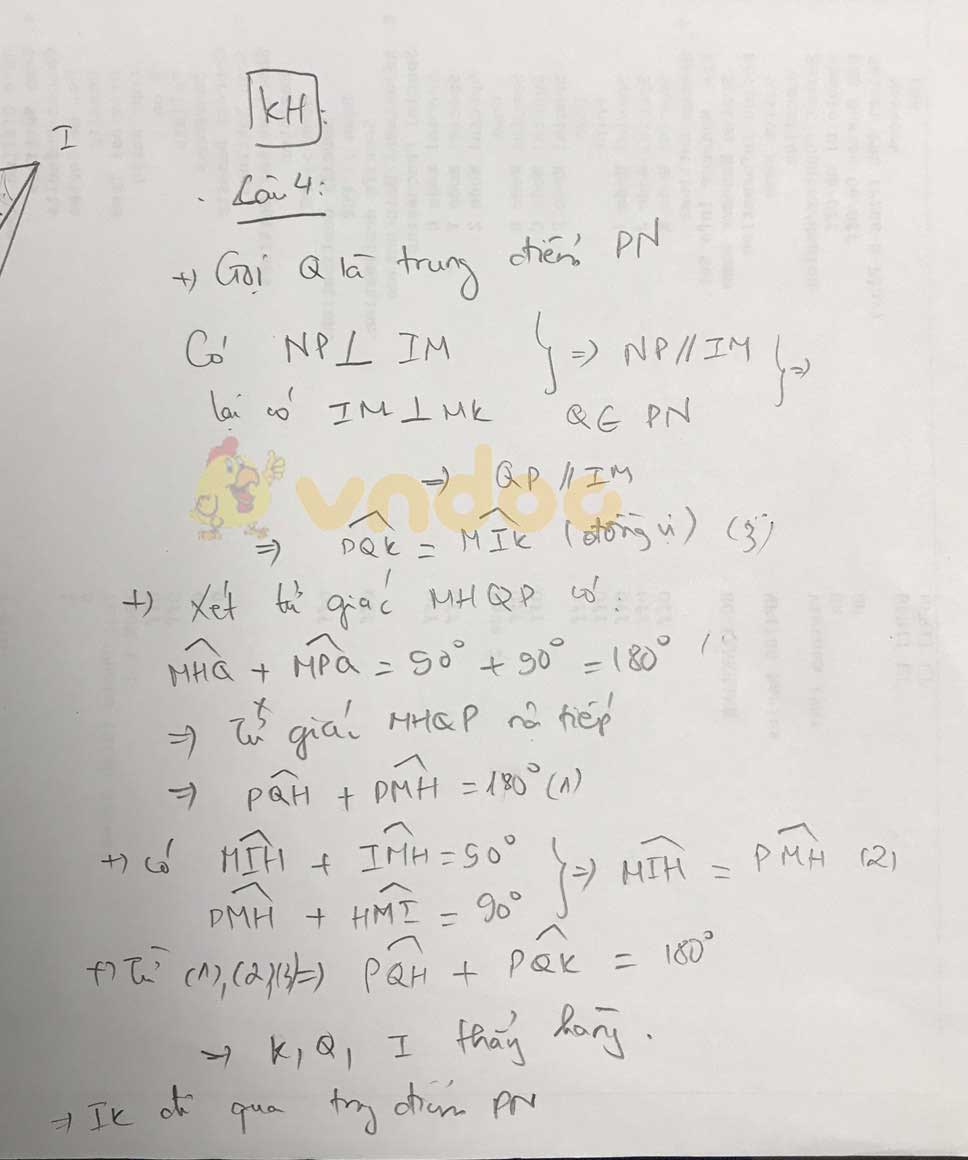 I
KH:
Câu 4:
+) Gọi Q là trung điểm PN
Có NP ⊥ IM } => NP // IM } =>
lại có IM ⊥ MK Q ∈ PN
=> QP // IM
vndoc
=> PQK = MIK (đồng vị) (3)
+) Xét tứ giác MHQP có:
MHQ + MPQ = 90° + 90° = 180°
=> Tứ giác MHQP nội tiếp
=> PQH + PMH = 180° (1)
+) Có MIH + IMH = 90° } => MIH = PMH (2)
PMH + HMI = 90°
+) Từ (1), (2), (3) => PQH + PQK = 180°
=> K, Q, I thẳng hàng.
=> IK đi qua trung điểm PN